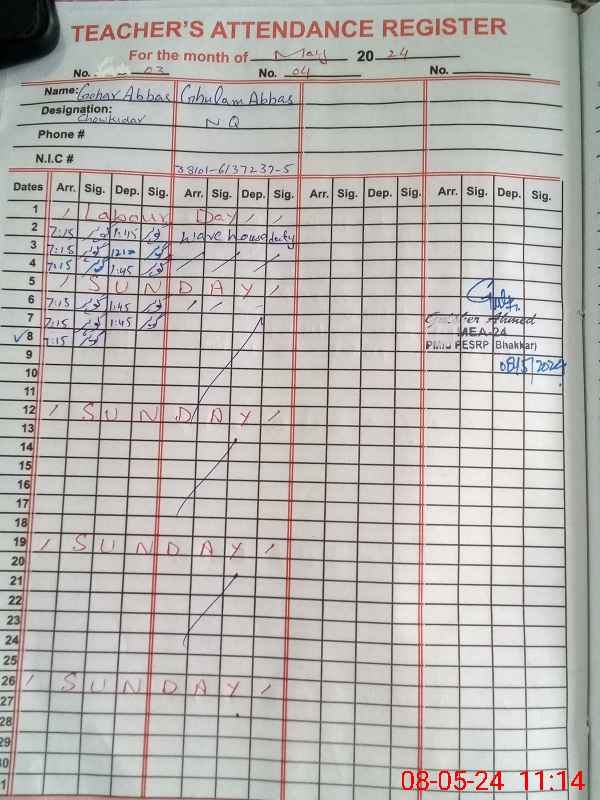 TEACHER'S ATTENDANCE REGISTER
For the month of May 20 24
No. 03 No. 04 No.
Name: Gohar Abbas Ghulam Abbas
Designation: Chowkidar N Q
Phone #
N.I.C # 38101-6137237-5
Dates Arr. Sig. Dep. Sig. Arr. Sig. Dep. Sig. Arr. Sig. Dep. Sig. Arr. Sig. Dep. Sig.
1 Labour Day
2 7:15 1:45 ware house duty
3 7:15
4 7:15 1:45
5 SUNDAY
6 7:15 1:45
7 7:15 1:45
8 7:15
Ahmed
MEA-24
PMIU PESRP (Bhakkar)
08/5/2024
9
10
11
12 SUNDAY
13
14
15
16
17
18
19 SUNDAY
20
21
22
23
24
25
26 SUNDAY
27
28
29
30
08-05-24 11:14